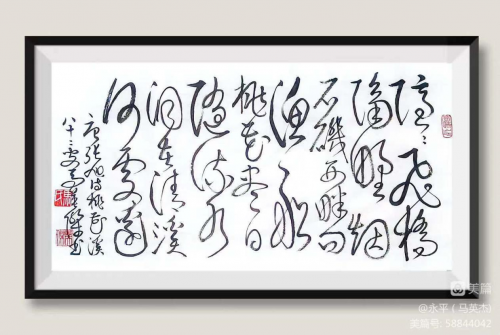 隐〻飞桥
隔野烟
石磯西畔问
渔船
桃花尽日
随流水
洞在清溪
何处边
唐张旭诗桃花溪
八十二叟马英杰书
美篇
@永平（马英杰）
美篇号: 58844042